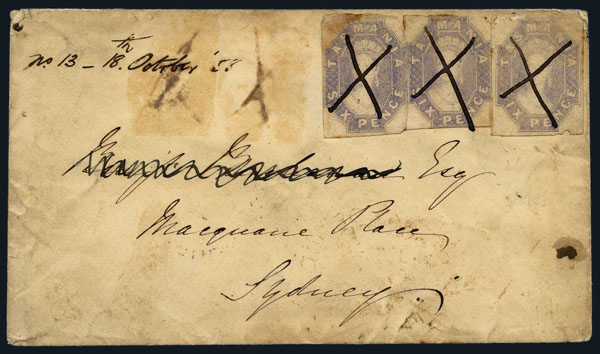 No. 13 – 18.th October '58
TASMANIA
SIX PENCE
TASMANIA
SIX PENCE
TASMANIA
SIX PENCE
Esq
Macquarie Place
Sydney.